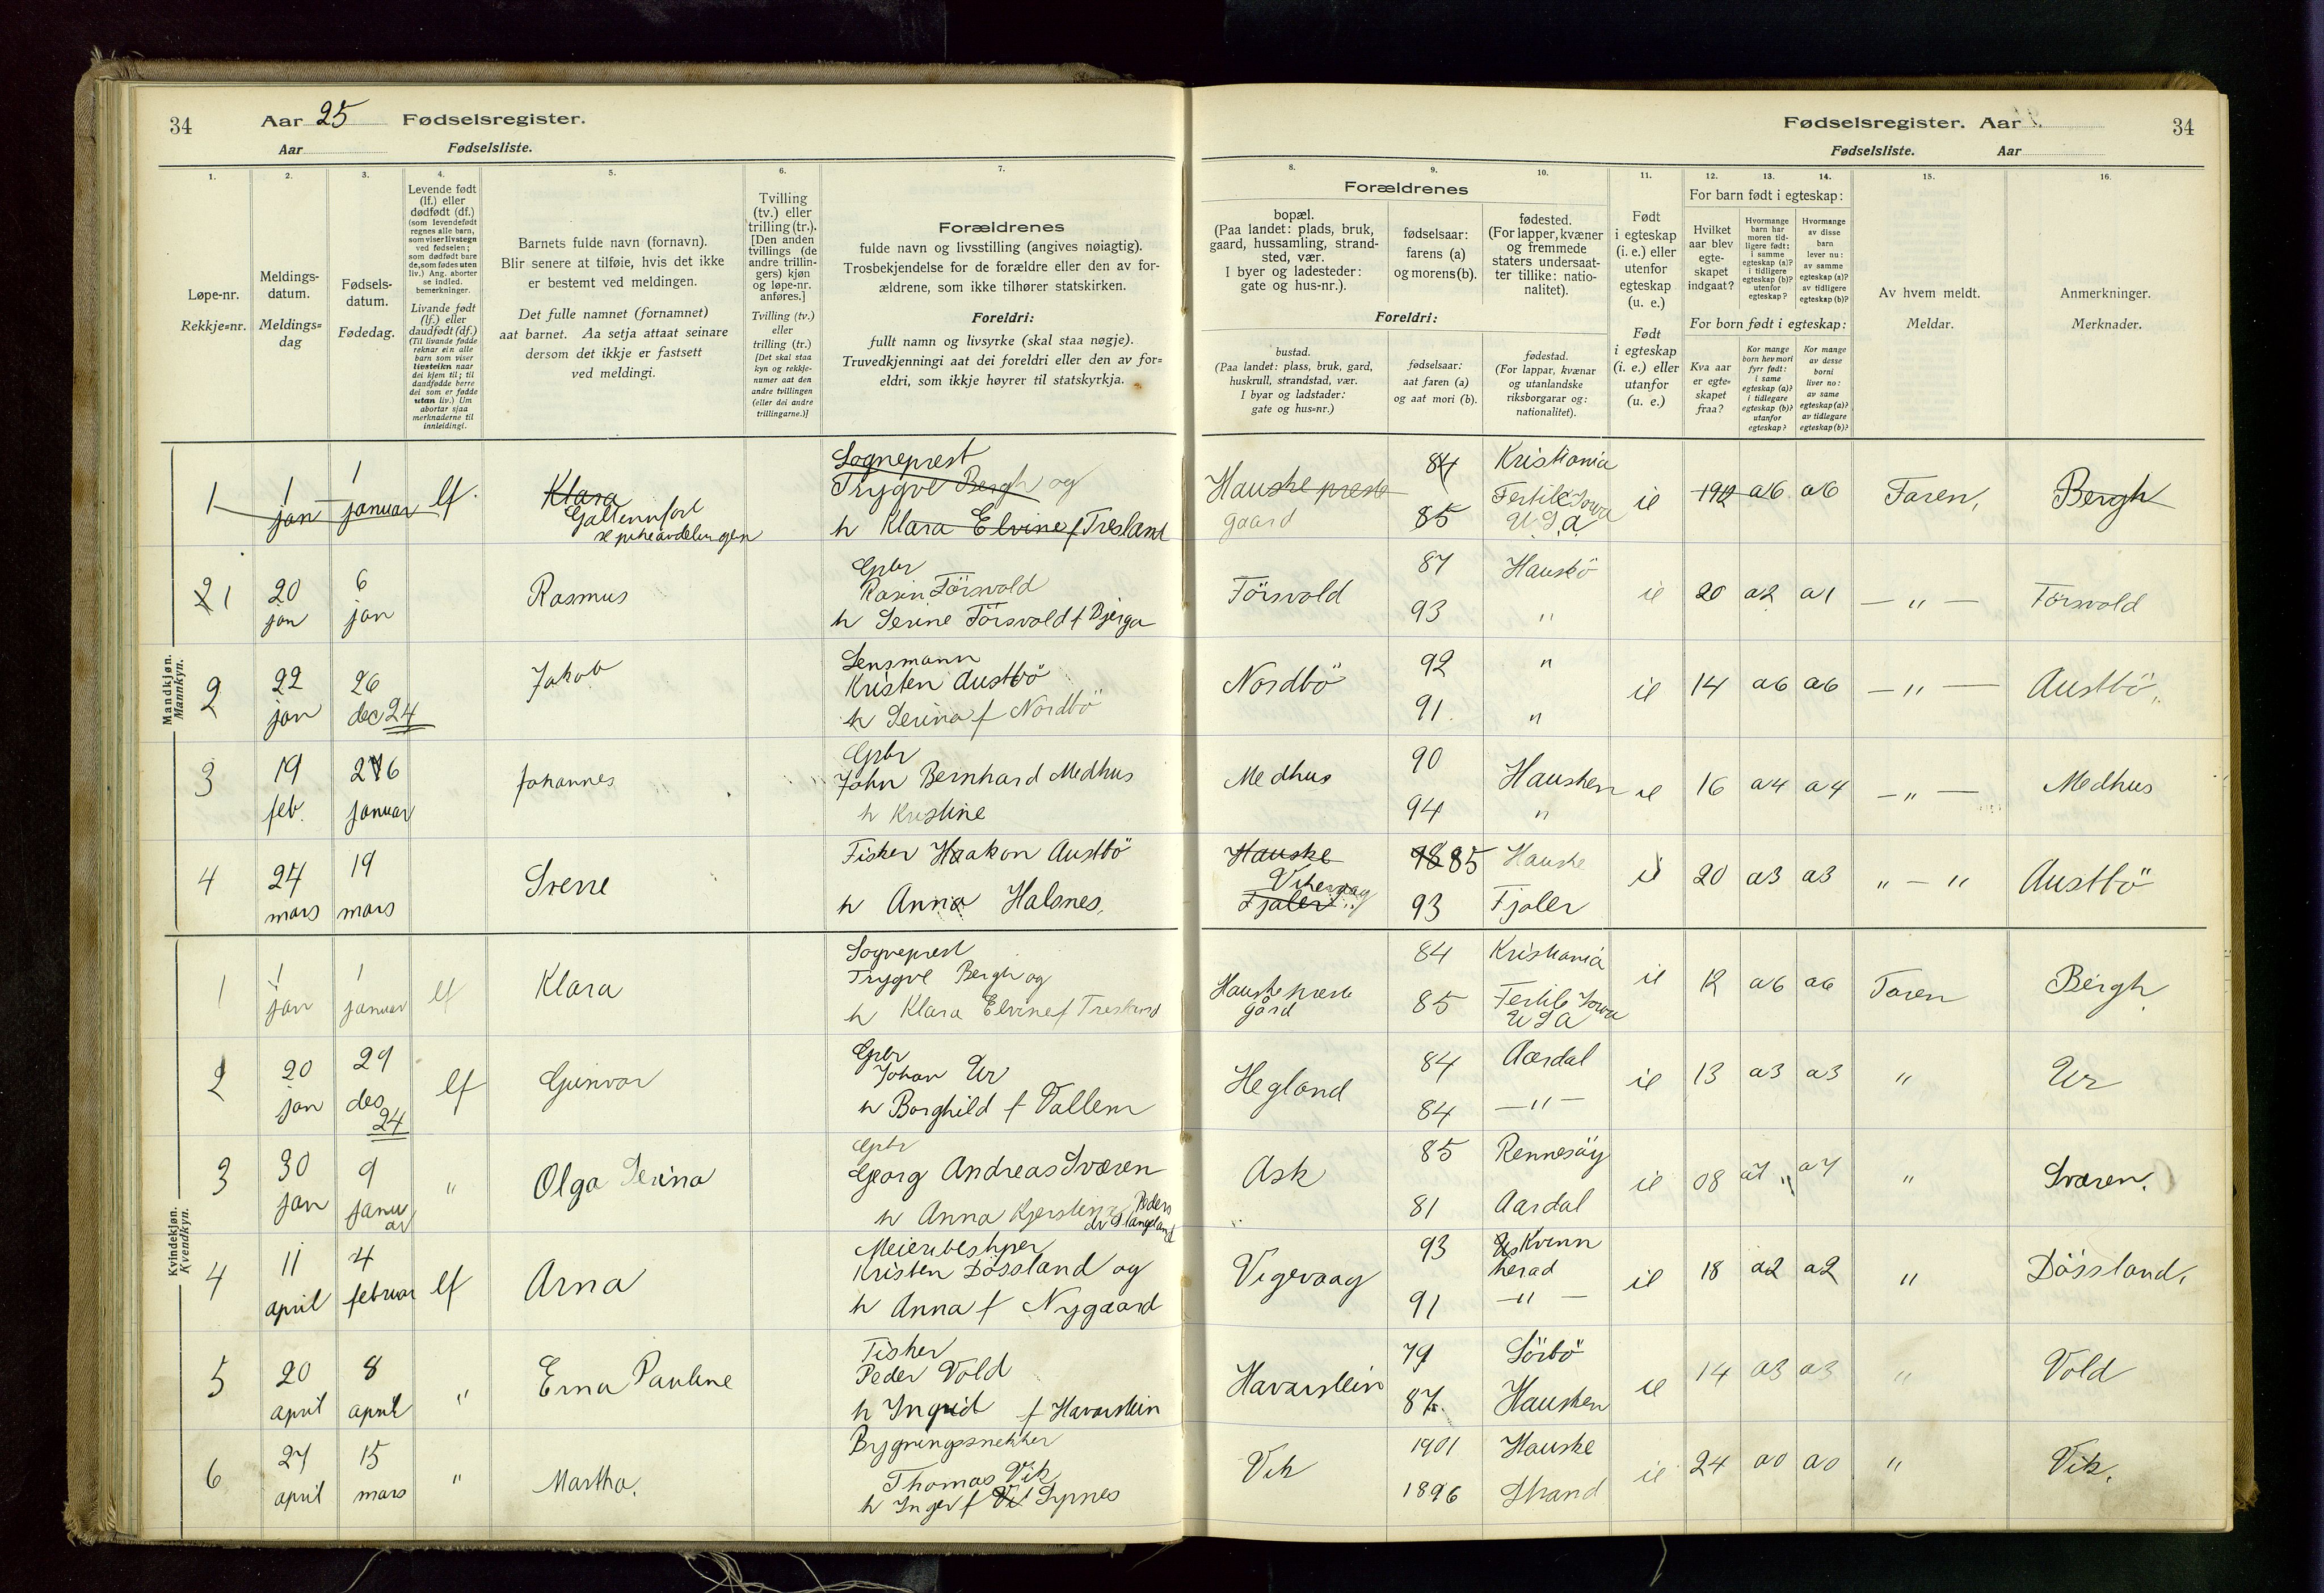 34 Aar 25 Fødselsregister.
Aar Fødselsliste.
Fødselsregister. Aar 34
Fødselsliste. Aar
1. 2. 3. 4. 5. 6. 7. 8. 9. 10. 11. 12. 13. 14. 15. 16.
Løpe-nr.
Rekkje=nr.
Meldings-
datum.
Meldings=
dag
Fødsels-
datum.
Fødedag.
Levende født
(lf.) eller
dødfødt (df.)
(som levendefødt
regnes alle barn,
som viser livstegn
ved fødselen;
som dødfødt bare
de, som fødes uten
liv.) Ang. aborter
se indled.
bemerkninger.
Livande født
(lf.) eller
daudfødt (df.)
(Til livande fødde
reknar ein alle
barn som viser
livsteikn naar
dei kjem til; til
daudfødde berre
dei som er fødde
utan liv.) Um
abortar sjaa
merknaderne til
innleidingi.
Barnets fulde navn (fornavn).
Blir senere at tilføie, hvis det ikke
er bestemt ved meldingen.
Det fulle namnet (fornamnet)
aat barnet. Aa setja attaat seinare
dersom det ikkje er fastsett
ved meldingi.
Tvilling
(tv.) eller
trilling (tr.).
[Den anden
tvillings (de
andre trillin-
gers) kjøn
og løpe-nr.
anføres.]
Tvilling (tv.)
eller
trilling (tr.)
[Det skal staa
kyn og rekkje-
numer aat den
andre tvillingen
(eller dei andre
trillingarne.)]
Forældrenes
fulde navn og livsstilling (angives nøiagtig).
Trosbekjendelse for de forældre eller den av for-
ældrene, som ikke tilhører statskirken.
Foreldri:
fullt namn og livsyrke (skal staa nøgje).
Truvedkjenningi aat dei foreldri eller den av for=
eldri, som ikkje høyrer til statskyrkja.
Forældrenes
bopæl.
(Paa landet: plads, bruk,
gaard, hussamling, strand-
sted, vær.
I byer og ladesteder:
gate og hus-nr.).
fødselsaar:
farens (a)
og morens (b).
fødested.
(For lapper, kvæner
og fremmede
staters undersaat-
ter tillike: natio-
nalitet).
Foreldri:
bustad.
(Paa landet: plass, bruk, gard,
huskrull, strandstad, vær.
I byar og ladstader:
gate og hus=nr.)
fødselsaar:
aat faren (a)
og aat mori (b).
fødestad.
(For lappar, kvænar
og utanlandske
riksborgarar og:
nationalitet).
Født
i egteskap
(i. e.) eller
utenfor
egteskap
(u. e.)
Født
i egteskap
(i. e.) eller
utanfor
(u. e.)
For barn født i egteskap:
Hvilket
aar blev
egte-
skapet
indgaat?
Hvormange
barn har
moren tid-
ligere født:
i samme
egteskap (a)?
i tidligere
egteskap (b)?
utenfor
egteskap?
Hvormange
av disse
barn
lever nu:
av samme
egteskap (a)?
av tidligere
egteskap (b)?
For born født i egteskap:
Kva aar
er egte-
skapet
fraa?
Kor mange
born hev mori
fyrr født:
i same
egteskap (a)?
i tidlegare
egteskap (b)?
utanfor
egteskap?
Kor mange
av desse
borni
liver no:
av same
egteskap (a)?
av tidlegare
egteskap (b)?
Av hvem meldt.
Meldar.
Anmerkninger.
Merknader.
Mandkjøn.
Mannkyn.
1 1 jan 1 januar lf. Klara
Sogneprest
Trygve Bergh og
h Klara Elvine f Tresland
Hauske preste
gaard
84 Kristiania
85 Fertile Iowa
U.S.A.
ie 1912 a6 a6 Faren, Bergh
21 20 jan 6 jan Rasmus
Gpbr
Rasm Försvold
h Serine Försvold f Bjerga
Försvold 87 Hausbö
93 "
ie 20 a2 a1 — " — Försvold
2 22 jan 26 dec 24 Jakob
Lensmann
Kristen Austbö
h Serina f Nordbö
Nordbö 92 "
91. "
ie 14 a6 a6 — " — Austbö
3 19 feb. 26 januar Johannes
Gpbr
John Bernhard Medhus
h Kristine
Medhus 90 Hausken
94 "
ie 16 a4 a4 — " — Medhus
4 24 mars 19 mars Sverre
Fisker Haakon Austbö
h Anna Halsnes,
Hauske
Vikevaag
Fjaler
85 Hauske
93 Fjaler
ie 20 a3 a3 " — " Austbö
Kvindekjøn.
Kvendkyn.
1 1 jan 1 januar lf Klara
Sogneprest
Trygve Bergh og
h Klara Elvine f Tresland
Hauske preste
gård
84 Kristiania
85 Fertile Iowa
U S A
ie 12 a6 a6 Faren Bergh
2 20 jan 29 des 24 lf Gunvor
Gpbr
Johan Ur
h Borghild f Vallem
Hegland 84 Aardal
84 — " —
ie 13 a3 a3 " Ur
3 30 jan 9 januar " Olga Serina
Gpbr
Georg Andreas Sværen
h Anna Kjerstina Peders
dr Slangeland
Ask 85 Rennesöy
81 Aardal
ie 08 a7 " a7 " Sværen.
4 11 april 4 februar lf Arna
Meieribestyrer
Kristen Dössland og
h Anna f Nygaard
Vigevaag 93 Kvinn
herad
91 — " —
ie 18 a2 a2 " Dössland,
5 20 april 8 april " Erna Pauline
Fisker
Peder Vold
h Ingrid f Havarstein
Havarstein 79 Sörbö
87. Hausken
ie 14 a3 a3 " Vold
6 27 april 15 mars " Martha.
Bygningssnekker
Thomas Vik
h Inger f Sypnes
Vik 1901 Hauske
1896 Strand
ie 24 a0 a0 " Vik.